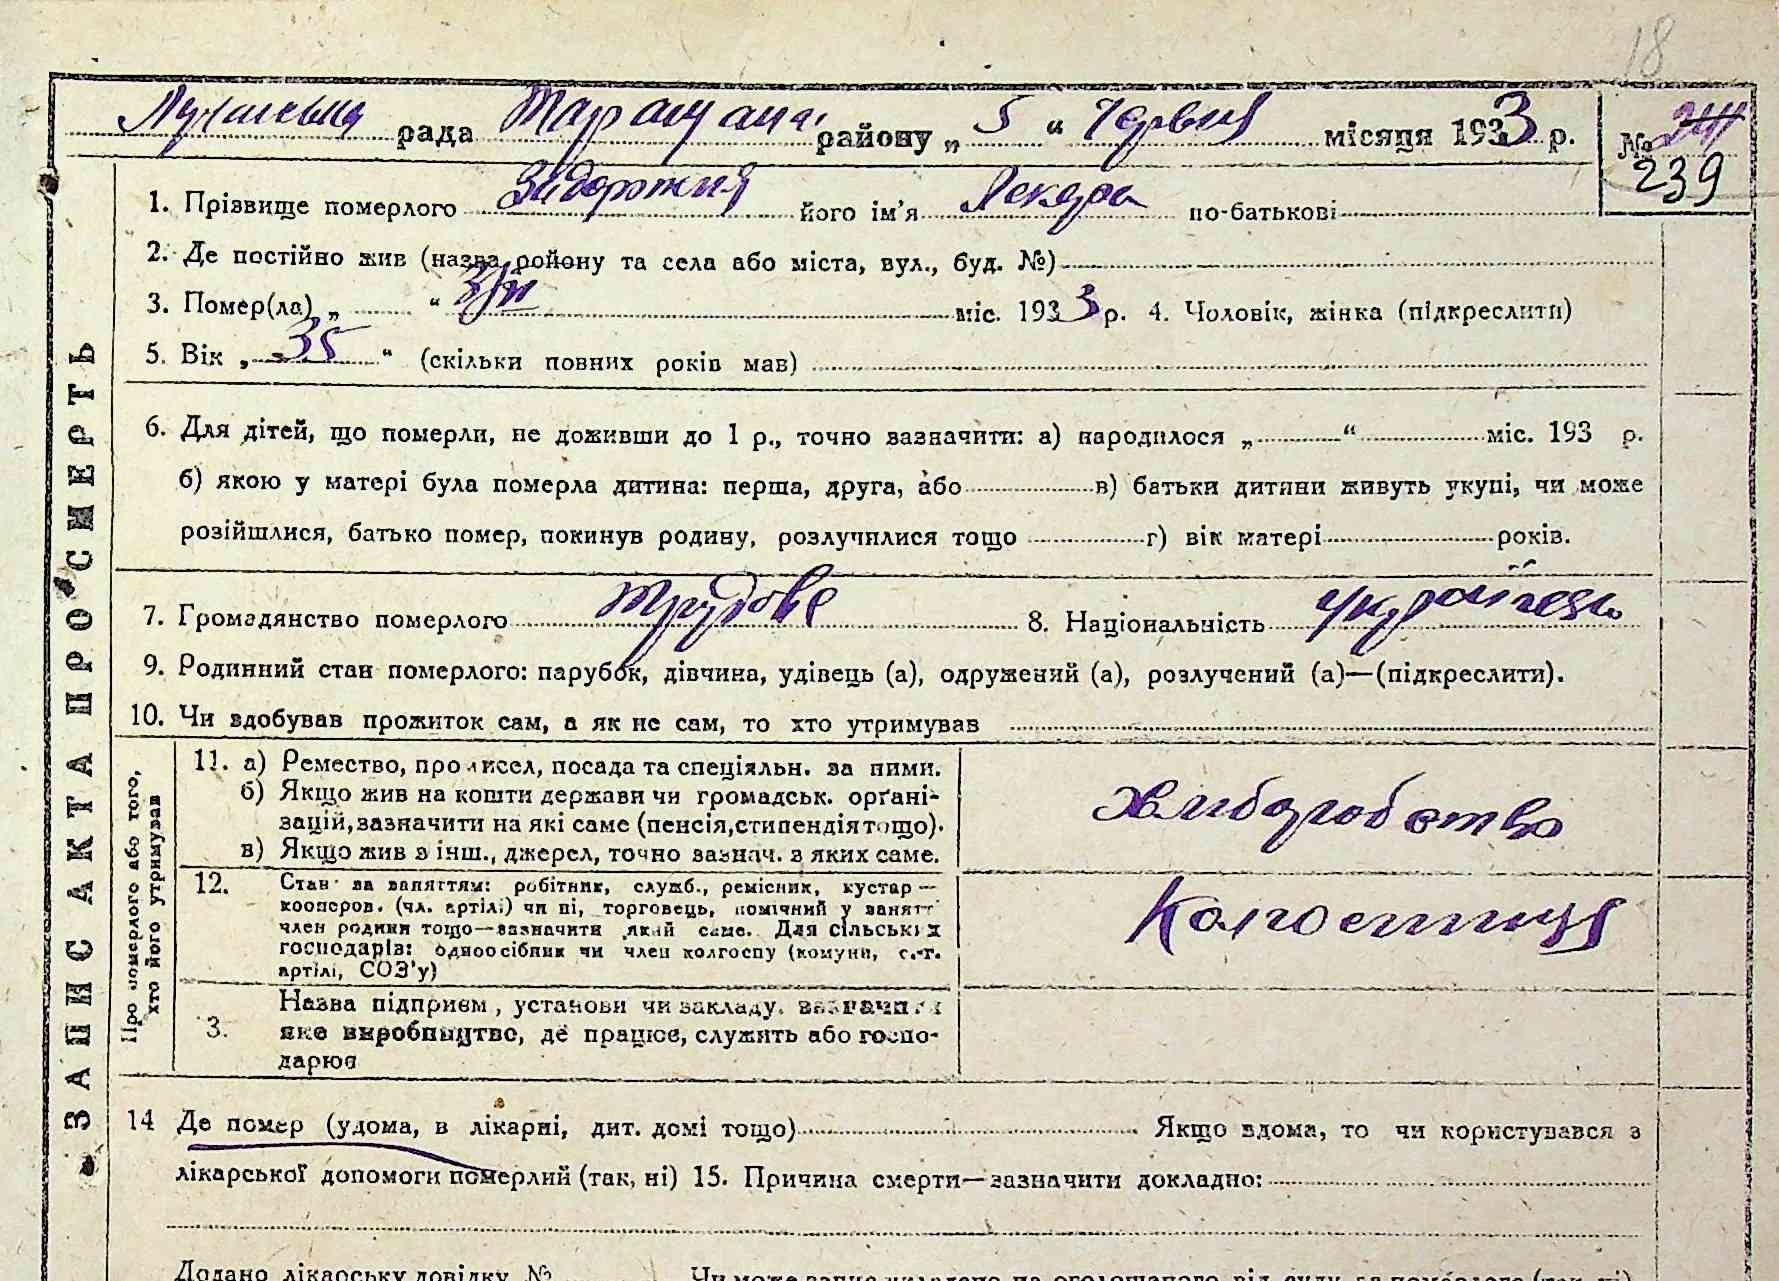 18
Лучанська рада Таращан. району „ 5 “ Червня місяця 1933 р. № 241
239
1. Прізвище померлого Задорожня його ім'я Текера по-батькові
2. Де постійно жив (назва району та села або міста, вул., буд. №)
3. Помер(ла) „ “ 3/VI міс. 1933 р. 4. Чоловік, жінка (підкреслити)
5. Вік „ 35 “ (скільки повних років мав)
6. Для дітей, що померли, не доживши до 1 р., точно зазначити: а) народилося „ “ міс. 193 р.
б) якою у матері була померла дитина: перша, друга, або в) батьки дитини живуть укупі, чи може
розійшлися, батько помер, покинув родину, розлучилися тощо г) вік матері років.
7. Громадянство померлого трудове 8. Національність
9. Родинний стан померлого: парубок, дівчина, удівець (а), одружений (а), розлучений (а)—(підкреслити).
10. Чи здобував прожиток сам, а як не сам, то хто утримував
ЗАПИС АКТА ПРО СМЕРТЬ
Про померлого або того,
хто його утримував
11. а) Ремество, промисел, посада та спеціяльн. за ними.
б) Якщо жив на кошти держави чи громадськ. орґані-
зацій, зазначити на які саме (пенсія, стипендія тощо).
в) Якщо жив з інш., джерел, точно зазнач. з яких саме.
хлиборобство
12. Стан за заняттям: робітник, служб., ремісник, кустар—
кооперов. (чл. артілі) чи ні, торговець, помічний у занятт
член родини тощо—зазначити який саме. Для сільських
господарів: одноосібник чи член колгоспу (комуни, с.-г.
артілі, СОЗ'у)
Колгоспниця
3. Назва підприєм, установи чи закладу, зазначити
яке виробництво, де працює, служить або госпо-
дарює
14 Де помер (удома, в лікарні, дит. домі тощо) Якщо вдома, то чи користувався з
лікарської допомоги померлий (так, ні) 15. Причина смерти—зазначити докладно:
Додано лікарську довідку №